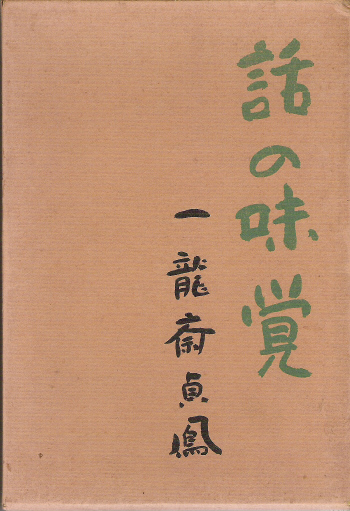 話の味覚
一龍斎貞鳳